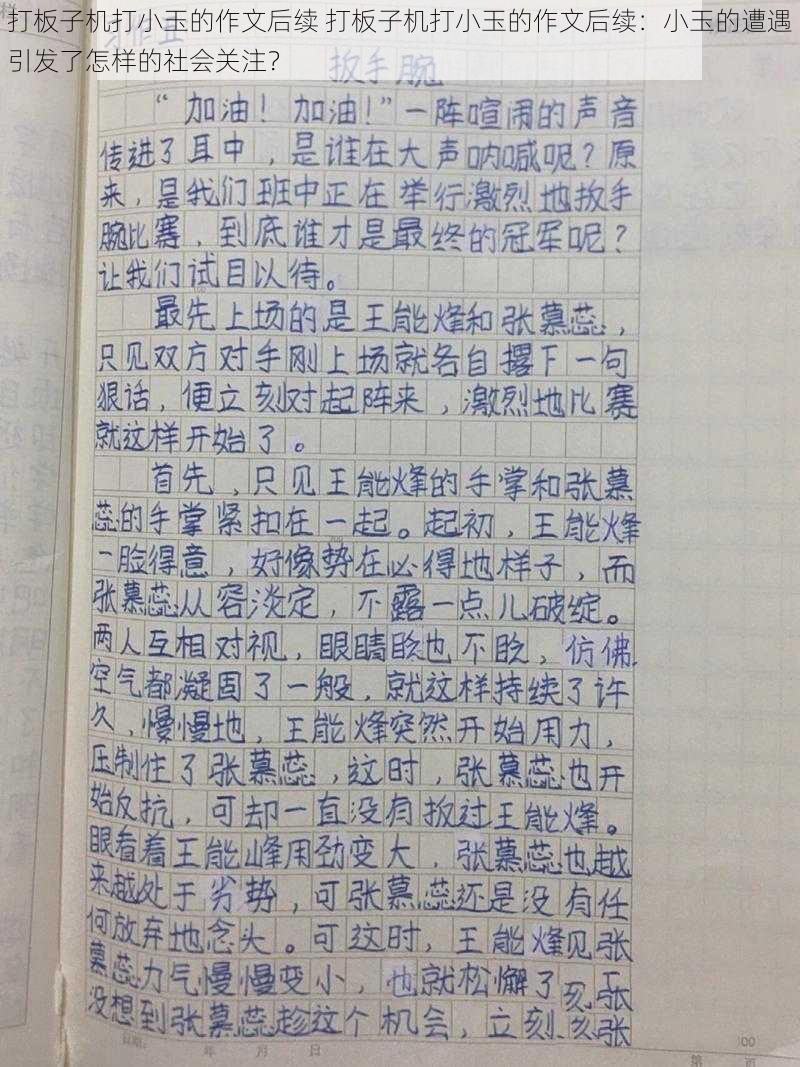 打板子机打小玉的作文后续 打板子机打小玉的作文后续：小玉的遭遇
引发了怎样的社会关注？
扳手腕
“加油！加油！”一阵喧闹的声音
传进了耳中，是谁在大声呐喊呢？原
来，是我们班中正在举行激烈地扳手
腕比赛，到底谁才是最终的冠军呢？
让我们试目以待。
最先上场的是王能烽和张慕蕊，
只见双方对手刚上场就各自撂下一句
狠话，便立刻对起阵来，激烈地比赛
就这样开始了。
首先，只见王能烽的手掌和张慕
蕊的手掌紧扣在一起。起初，王能烽
一脸得意，好像势在必得地样子，而
张慕蕊从容淡定，不露一点儿破绽。
两人互相对视，眼睛眨也不眨，仿佛
空气都凝固了一般，就这样持续了许
久，慢慢地，王能烽突然开始用力，
压制住了张慕蕊，这时，张慕蕊也开
始反抗，可却一直没有扳过王能烽。
眼看着王能峰用劲变大，张慕蕊也越
来越处于劣势，可张慕蕊还是没有任
何放弃地念头。可这时，王能烽见张
慕蕊力气慢慢变小，也就松懈了
没想到张慕蕊趁这个机会，立刻
年 月 日
第 页